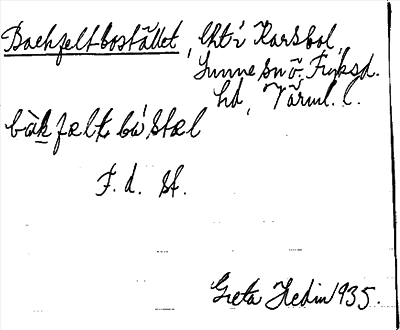 Bachfeltbostället, lht i Karsbol,
Sunne sn ö. Fryksd.
hd, Värml. l.
bàkfæltbɷ́stæl
F. d. st.
Greta Hedin 1935.